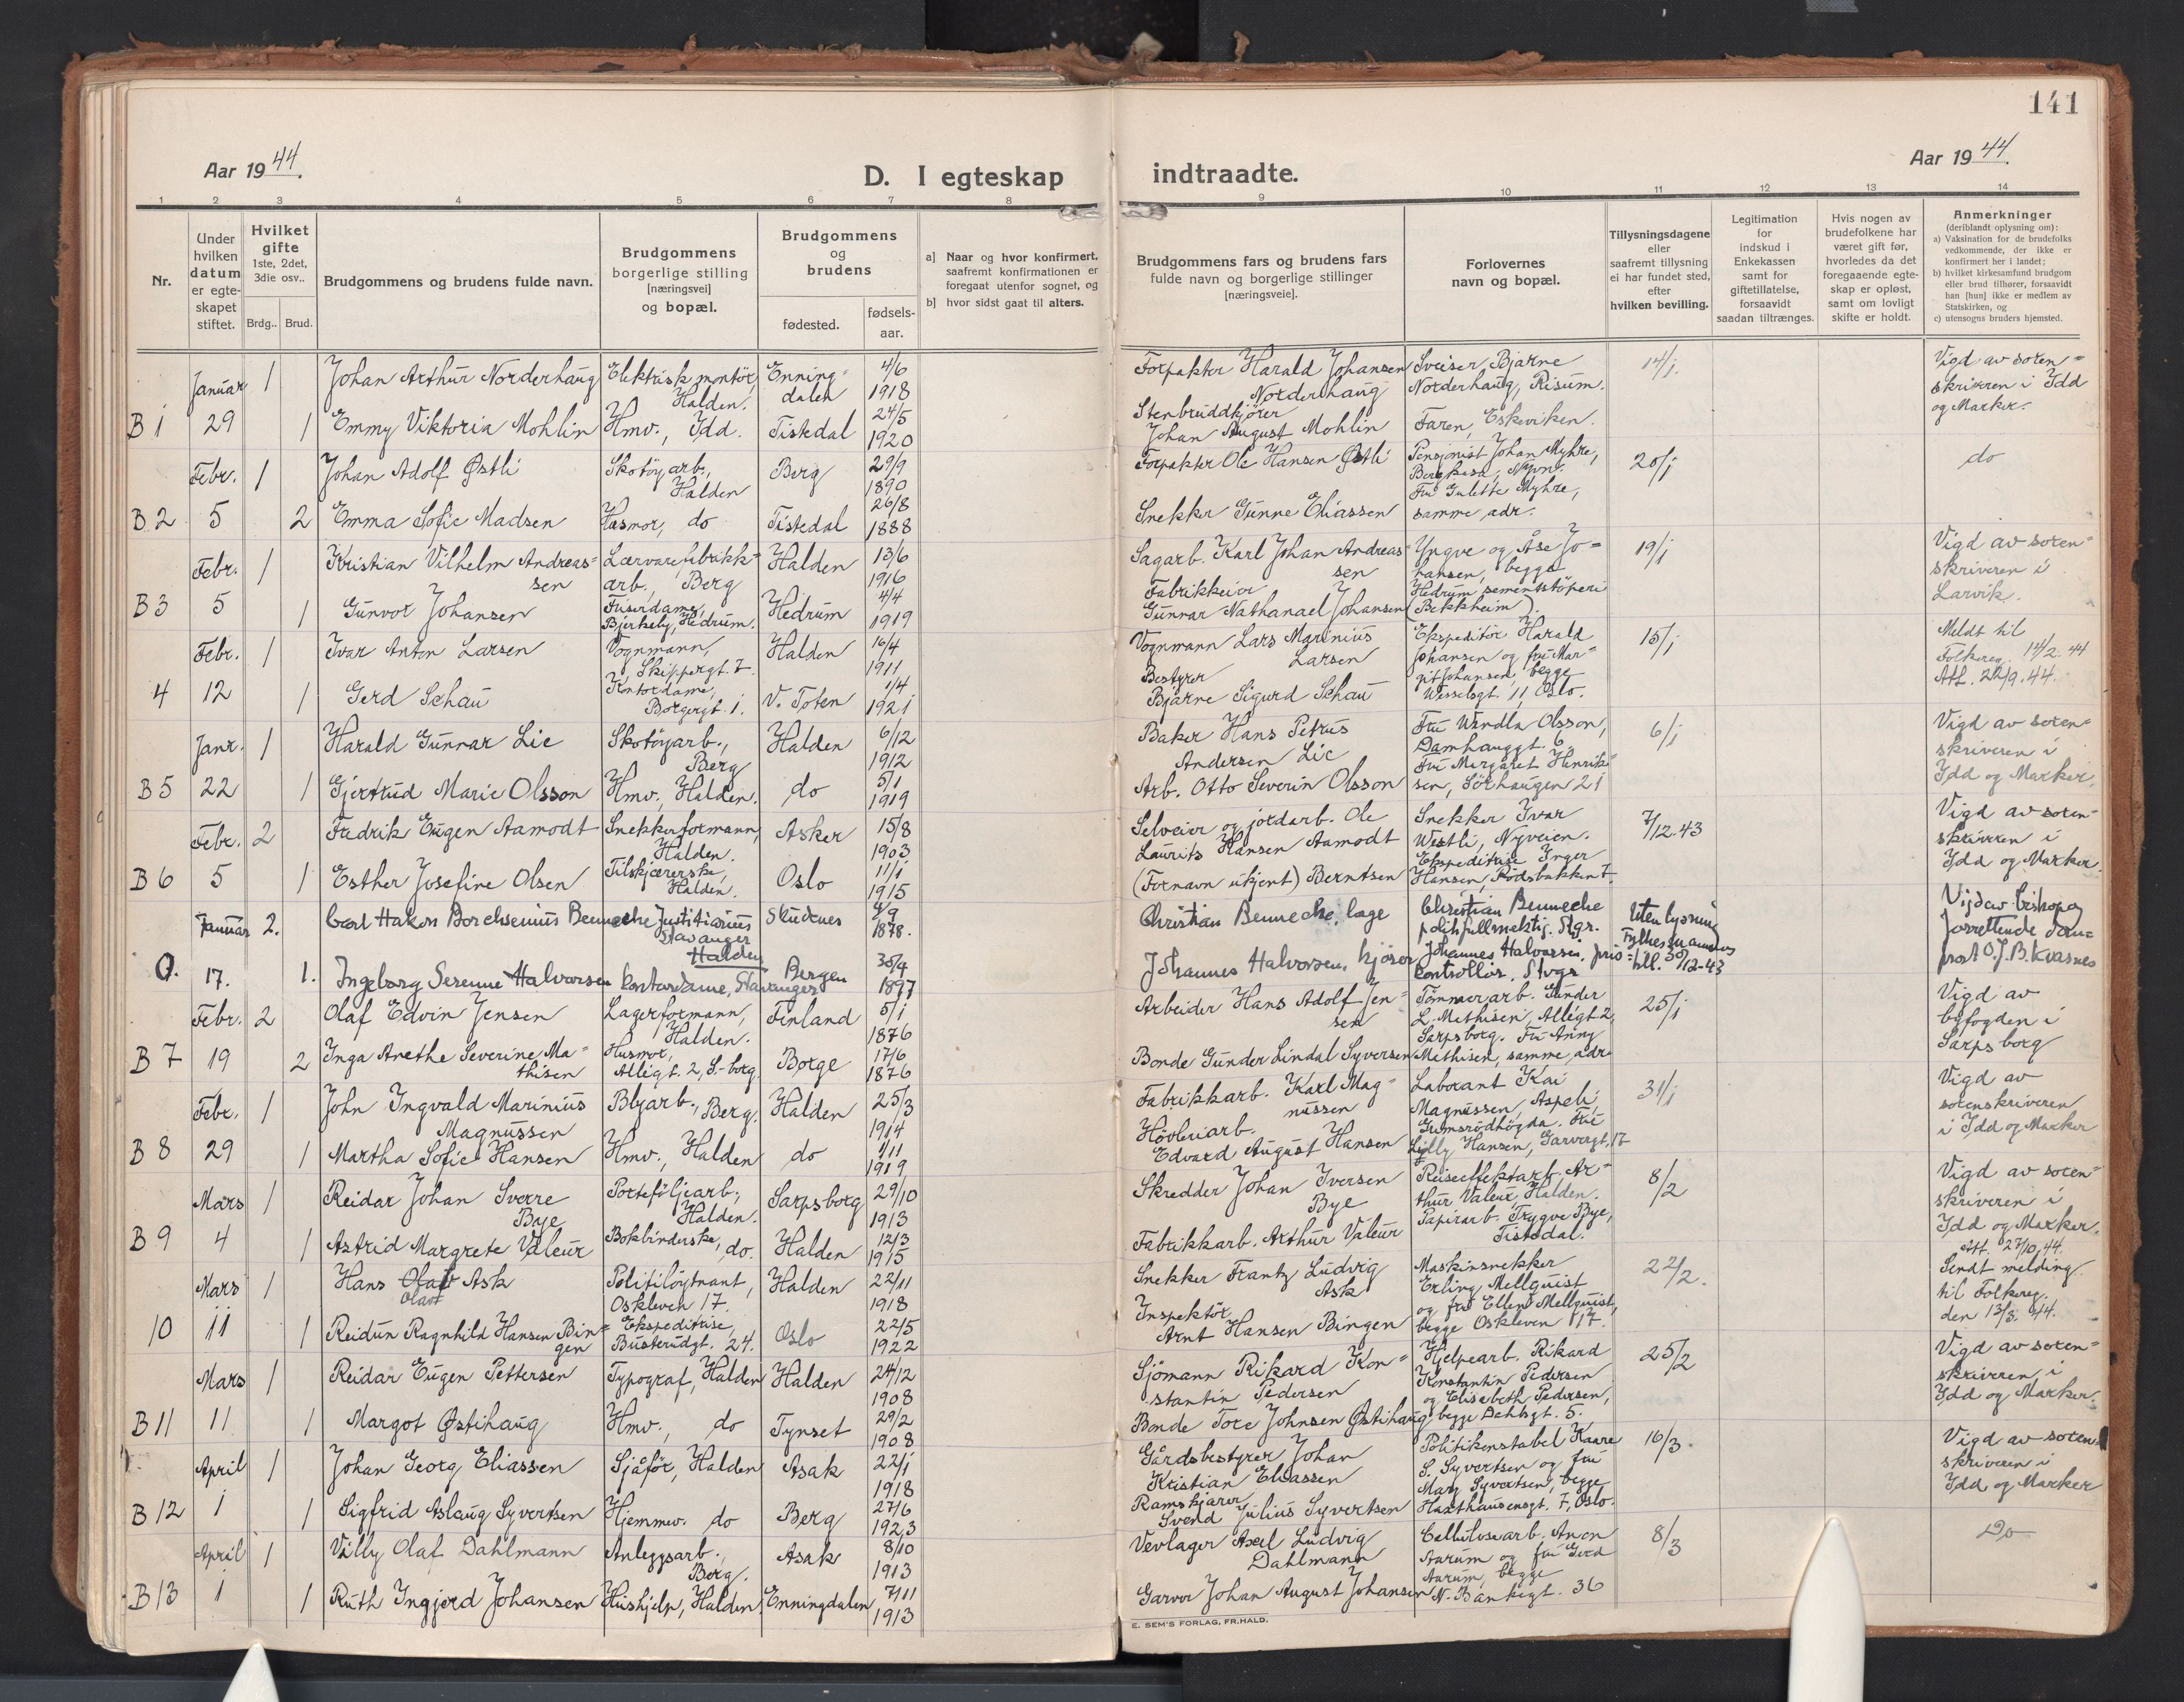 141
Aar 1944.
Aar 1944.
D. I egteskap indtraadte.
1 2 3 4 5 6 7 8 9 10 11 12 13 14
Nr.
Under hvilken datum er egteskapet stiftet.
Hvilket gifte 1ste, 2det, 3die osv..
Brdg.. Brud.
Brudgommens og brudens fulde navn.
Brudgommens borgerlige stilling [næringsvei] og bopæl.
Brudgommens og brudens
fødested. fødselsaar.
a] Naar og hvor konfirmert, saafremt konfirmationen er foregaat utenfor sognet, og
b] hvor sidst gaat til alters.
Brudgommens fars og brudens fars fulde navn og borgerlige stillinger [næringsveie].
Forlovernes navn og bopæl.
Tillysningsdagene eller saafremt tillysning ei har fundet sted, efter hvilken bevilling.
Legitimation for indskud i Enkekassen samt for giftetillatelse, forsaavidt saadan tiltrænges.
Hvis nogen av brudefolkene har været gift før, hvorledes da det foregaaende egteskap er opløst, samt om lovligt skifte er holdt.
Anmerkninger
(deriblandt oplysning om):
a) Vaksination for de brudefolks vedkommende, der ikke er konfirmert her i landet;
b) hvilket kirkesamfund brudgom eller brud tilhører, forsaavidt han [hun] ikke er medlem av Statskirken, og
c) utensogns bruders hjemsted.
Januar 1 Johan Arthur Norderhaug Elektrisk montør, Halden. Enningdalen 4/6 1918 Forpakter Harald Johansen Norderhaug Sveiser Bjarne Norderhaug, Risum. 14/1. Vigd av sorenskriveren i Idd og Marker.
B 1 29 1 Emmy Viktoria Mohlin Hmv., Idd. Tistedal 24/5 1920 Stenbruddkjører Johan August Mohlin Faren, Eskeviken.
Febr. 1 Johan Adolf Østli Skotøyarb., Halden Berg 29/9 1890 Forpakter Ole Hansen Østli Pensjonist Johan Myhre, 20/1 do
B 2 5 2 Emma Sofie Madsen Husmor, do Tistedal 26/8 1888 Snekker Gunne Eliassen Fru Gulette Myhre, samme adr.
Febr. 1 Kristian Vilhelm Andreassen Lærvarefabrikkarb., Berg Halden 13/6 1916 Sagarb. Karl Johan Andreassen Yngve og Åse Johansen, begge Hedrum sementstøperi (Bekkheim). 19/1 Vigd av sorenskriveren i Larvik.
B 3 5 1 Gunvor Johansen Friserdame, Bjerkely, Hedrum. Hedrum 4/4 1919 Fabrikkeier Gunnar Nathanael Johansen
Febr. 1 Ivar Anton Larsen Vognmann, Skippergt. 7. Halden 16/4 1911 Vognmann Lars Marinius Larsen Ekspeditør Harald Johansen og fru Margit Johansen, begge Wesselsgt. 11, Oslo. 15/1 Meldt til Folkereg. 14/2. 44 Att. 22/9. 44.
4 12 1 Gerd Schau Kontordame, Borgergt. 1. V. Toten 1/4 1921 Bestyrer Bjarne Sigurd Schau
Janr. 1 Harald Gunnar Lie Skotøyarb., Berg Halden 6/12 1912 Baker Hans Petrus Andersen Lie Fru Wandla Olsson, Damhauggt. 6. 6/1 Vigd av sorenskriveren i Idd og Marker.
B 5 22 1 Gjertrud Marie Olsson Hmv., Halden. do 5/1 1919 Arb. Otto Severin Olsson Fru Margaret Henriksen, Sørhaugen 21
Febr. 2 Fredrik Eugen Aamodt Snekkerformann, Halden. Asker 15/8 1903 Selveier og jordarb. Ole Laurits Hansen Aamodt Snekker Ivar Westli, Nyveien. 7/12. 43 Vigd av sorenskriveren i Idd og Marker.
B 6 5 1 Esther Josefine Olsen Tilskjærerske, Halden. Oslo 11/1 1915 (Fornavn ukjent) Berntsen Ekspeditrise Inger Hansen, Rødsbakken 7.
Januar 2. Carl Hakon Borchsenius Benneche Justitiarius Stavanger Skudenes 1878. Christian Benneche, læge Christian Bennecke politifullmektig. Stgr. Uten lysning Fylkesmannens till. 30/12-43 Vigd av biskop og forrettende domprost O.J.B. Kvasnes
0. 17. 1. Ingeborg Serenne Halvorsen Kontordame, Stavanger Halden Bergen 30/4 1897 Johannes Halvorsen, kjører Johannes Halvorsen, priskontrollør, Stvgr
Febr. 2 Olaf Edvin Jensen Lagerformann, Halden. Finland 5/1 1876 Arbeider Hans Adolf Jensen Tømmerarb. Gunder L. Mathisen, Alleigt. 2, Sarpsborg. 25/1 Vigd av byfogden i Sarpsborg
B 7 19 2 Inga Anethe Severine Mathisen Husmor, Alleigt. 2, S.-borg. Borge 17/6 1876 Bonde Gunder Lindal Syversen Fru Anny Mathisen, samme adr.
Febr. 1 John Ingvald Marinius Magnussen Blyarb., Berg. Halden 25/3 1914 Fabrikkarb. Karl Magnussen Laborant Kai Magnussen, Aspeli, Grimsrødhøgda. 31/1 Vigd av sorenskriveren i Idd og Marker
B 8 29 1 Martha Sofie Hansen Hmv., Halden do 1/11 1919 Høvleriarb. Edvard August Hansen Fru Lilly Hansen, Garvergt. 17
Mars 1 Reidar Johan Sverre Bye Porteføljearb., Halden. Sarpsborg 29/10 1913 Skredder Johan Iversen Bye Reiseeffektarb. Arthur Valeur, Halden. 8/2 Vigd av sorenskriveren i Idd og Marker.
B 9 4 1 Astrid Margrete Valeur Bokbinderske, do. Halden 12/3 1915 Fabrikkarb. Arthur Valeur Papirarb. Trygve Bye, Tistedal.
Mars 1 Hans Olaf Ask Olav Politiløytnant, Oskleven 17. Halden 22/11 1918 Snekker Frantz Ludvig Ask Maskinsnekker Erling Mellquist og fru Ellen Mellquist, begge Oskleven 17. 22/2. Att. 27/10. 44. Sendt melding til Folkereg. den 13/3. 44.
10 11 1 Reidun Ragnhild Hansen Bingen Ekspeditrise, Busterudgt. 24. Oslo 22/5 1922 Inspektør Arnt Hansen Bingen
Mars 1 Reidar Eugen Pettersen Typograf, Halden Halden 24/12 1908 Sjømann Rikard Konstantin Pedersen Hjelpearb. Rikard Konstantin Pedersen og Elisabeth Pedersen, begge Dehlsgt. 5. 25/2 Vigd av sorenskriveren i Idd og Marker.
B 11 11 1 Margot Østihaug Hmv., do Tynset 29/2 1908 Bonde Tore Johnsen Østihaug
April 1 Johan Georg Eliassen Sjåfør, Halden Asak 22/1 1918 Gårdsbestyrer Johan Kristian Eliassen Politikonstabel Kaare S. Syvertsen og fru Mary Syvertsen, begge Haxthausensgt. 7, Oslo. 16/3. Vigd av sorenskriveren i Idd og Marker
B 12 1 1 Sigfrid Aslaug Syvertsen Hjemmev. do Berg 27/6 1923 Svend Julius Syvertsen
April 1 Villy Olaf Dahlmann Anleggsarb., Berg. Asak 8/10 1913 Vevlager Axel Ludvig Dahlmann Cellulosearb. Anon Aarum og fru Gerd Aarum, begge N. Bankegt. 36 8/3 Do
B 13 1 1 Ruth Ingjerd Johansen Hushjelp, Halden. Enningdalen 7/11 1913 Garver Johan August Johansen
E. SEM'S FORLAG, FR.HALD.